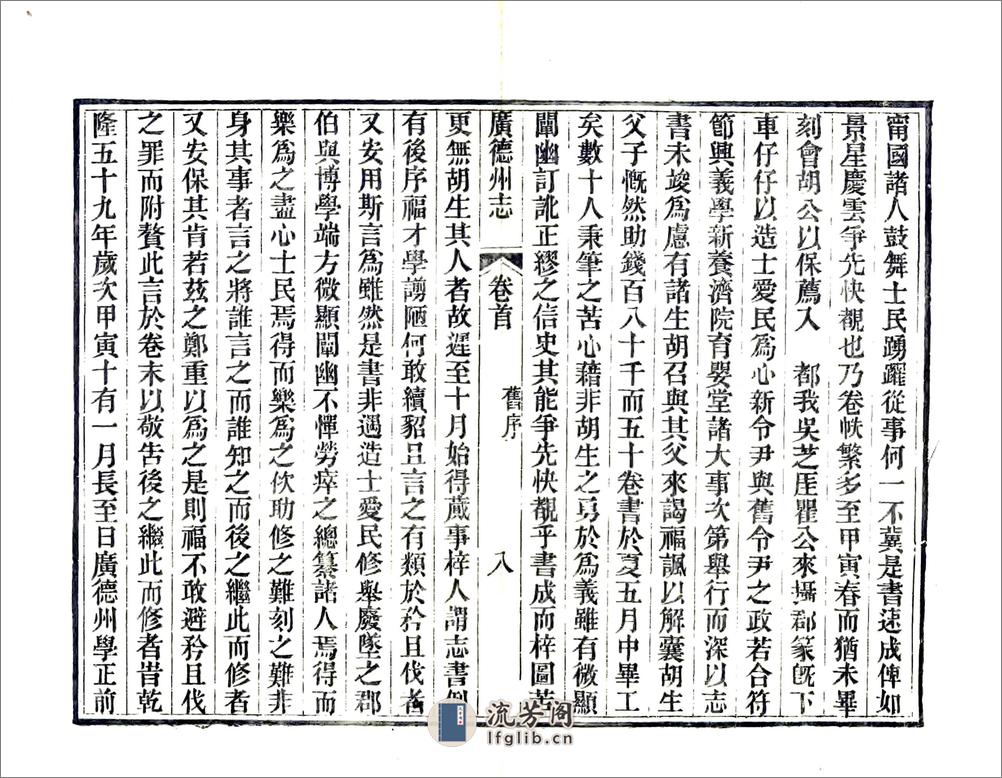 甯國諸人鼓舞士民踴躍從事何一不冀是書速成俾如
景星慶雲爭先快覩也乃卷帙繁多至甲寅春而猶未畢
刻會胡公以保薦入　都我吳芝厓瞿公來攝郡篆旣下
車仔仔以造士愛民爲心新令尹與舊令尹之政若合符
節興義學新養濟院育嬰堂諸大事次第舉行而深以志
書未竣爲慮有諸生胡召與其父來謁福諷以解囊胡生
父子慨然助錢百八十千而五十卷書於夏五月中畢工
矣數十人秉筆之苦心藉非胡生之勇於爲義雖有微顯
闡幽訂訛正繆之信史其能爭先快覩乎書成而梓圖苦
廣德州志　卷首　舊序　八
更無胡生其人者故遲至十月始得蕆事梓人謂志書例
有後序福才學謭陋何敢續貂且言之有類於矜且伐者
又安用斯言爲雖然是書非遇造士愛民修舉廢墜之郡
伯與博學端方微顯闡幽不憚勞瘁之總纂諸人焉得而
樂爲之盡心士民焉得而樂爲之佽助修之難刻之難非
身其事者言之將誰言之而誰知之而後之繼此而修者
又安保其肯若茲之鄭重以爲之是則福不敢避矜且伐
之罪而附贅此言於卷末以敬告後之繼此而修者昔乾
隆五十九年歲次甲寅十有一月長至日廣德州學正前
流芳阁
lfglib.cn